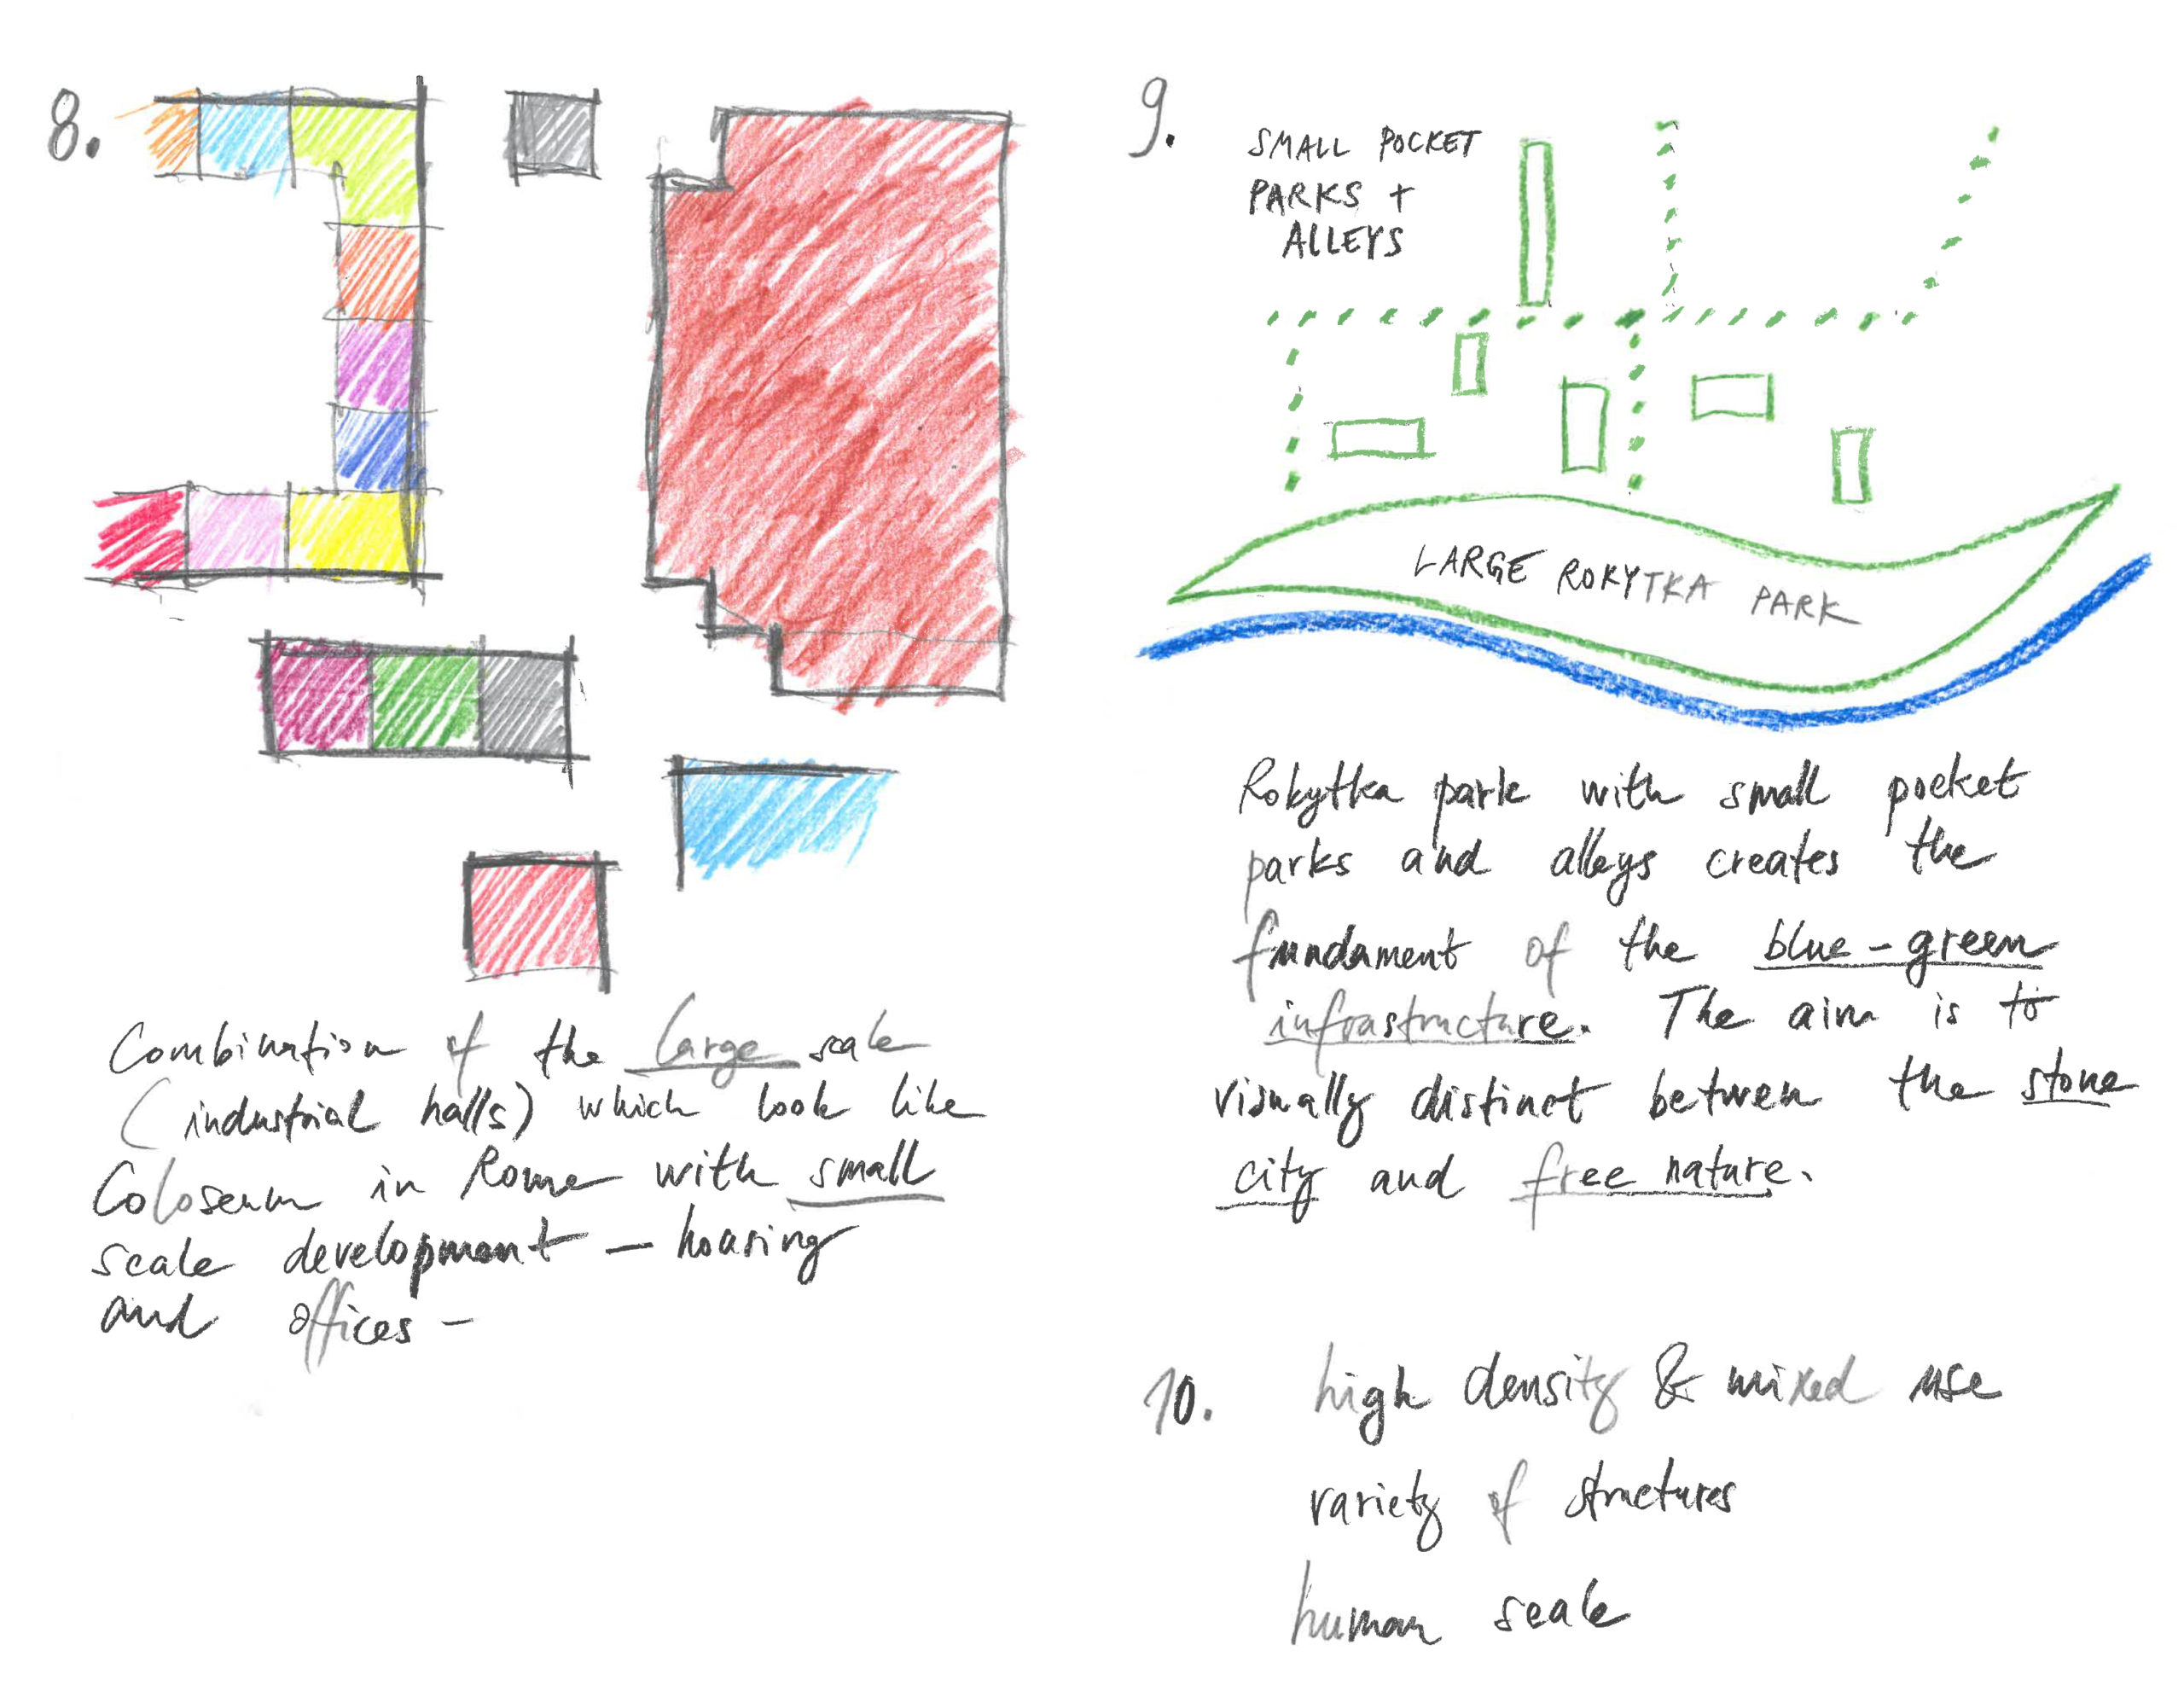 8.
Combination of the large scale
(industrial halls) which look like
Coloseum in Rome with small
scale development – housing
and offices –
9.
SMALL POCKET
PARKS +
ALLEYS
LARGE ROKYTKA PARK
Rokytka park with small pocket
parks and alleys creates the
fundament of the blue-green
infrastructure. The aim is to
visually distinct between the stone
city and free nature.
10. high density & mixed use
variety of structures
human scale